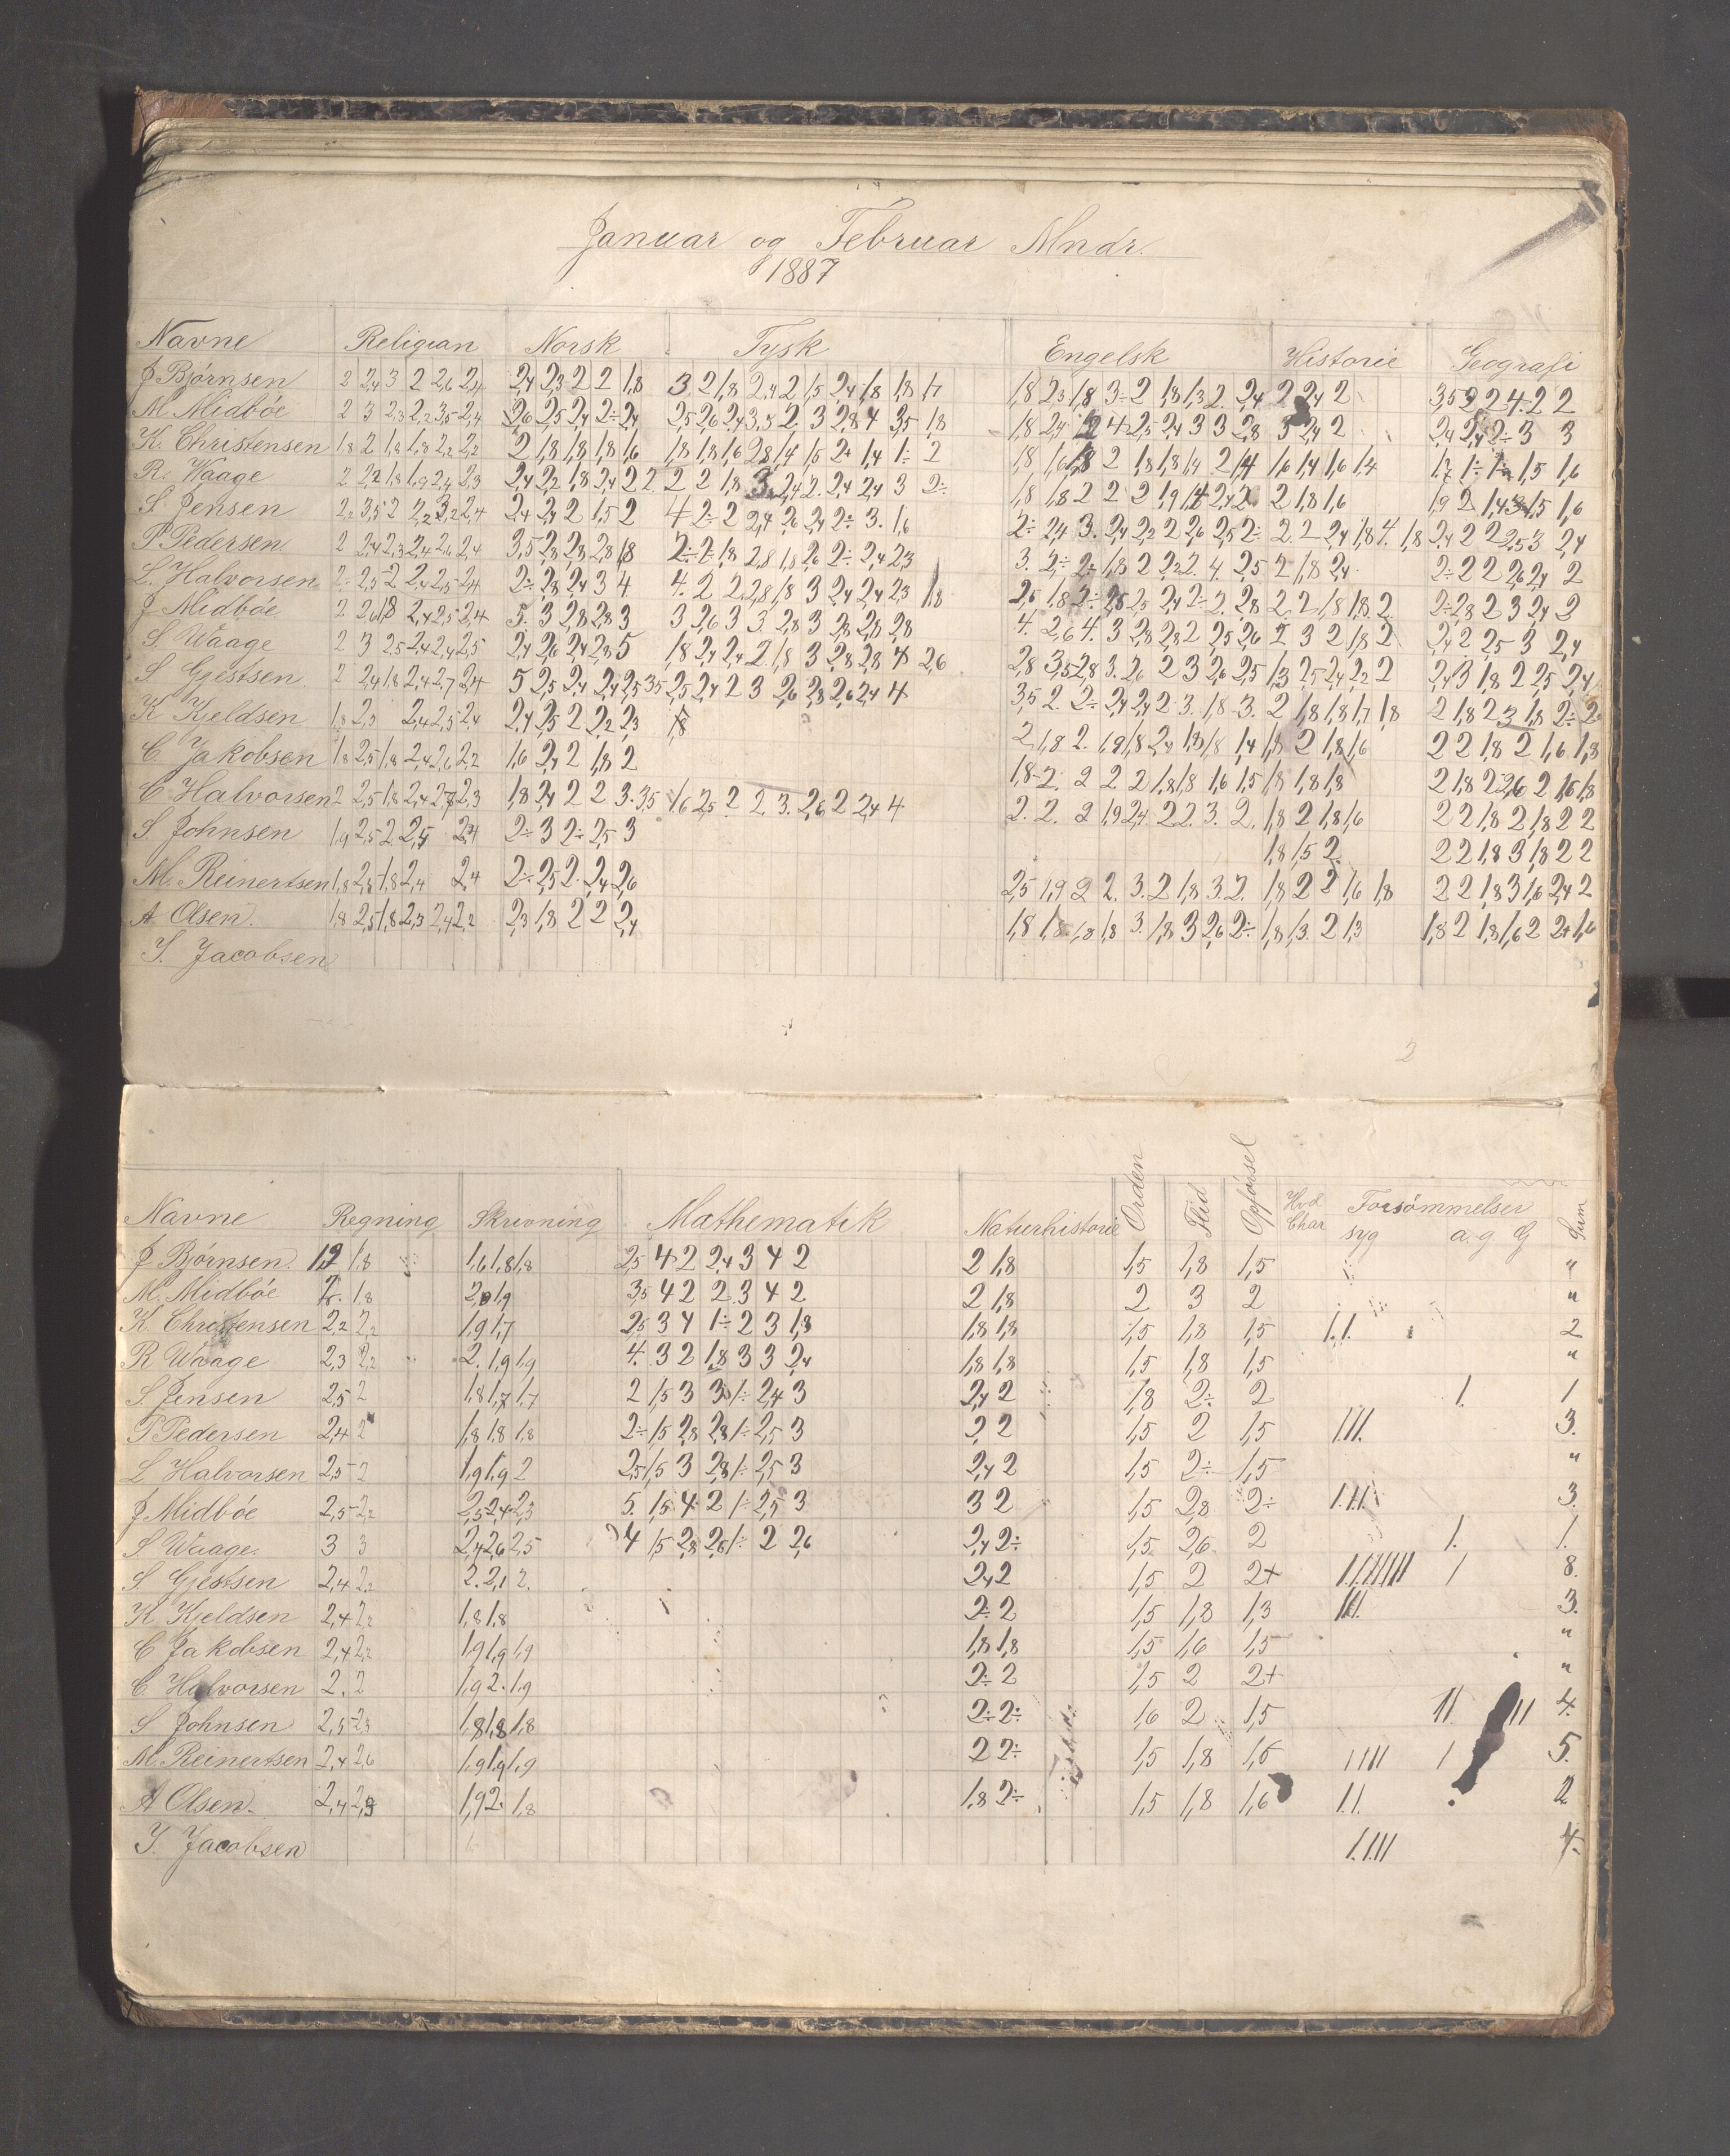 Januar og Februar Mndr.
1887
Navne Religion Norsk Tysk Engelsk Historie Geografi
J Bjørnsen 2 2,4 3 2 2,6 2,4 2,4 2,3 2 2 1,8 3 2 1,8 2,4 2 1,5 2,4 1,8 1,8 1,7 1,8 2,3 1,8 3÷ 2 1,8 1,3 2. 2,4 2 2,4 2 3,5 2 2 4. 2 2
M. Midbøe 2 3 2,3 2,2 3,5 2,4 2,6 2,5 2,4 2÷ 2,4 2,5 2,6 2,4 3,5 2. 3 2,8 4 3,5 1,8 1,8 2,4 2 4 2,5 2,4 3 3 2,8 3 2,4 2 2,4 2,4 2÷ 3 3
K. Christensen 1,8 2 1,8 1,8 2,2 2,2 2 1,8 1,8 1,8 1,6 1,8 1,8 1,6 2,8 1,4 1,5 2+ 1,4 1÷ 2 1,8 1,6 1,8 2 1,8 1,8 1,4 2 1,4 1,6 1,4 1,6 1,4 1,7 1÷ 1÷ 1,5 1,6
R. Waage 2 2,2 1,8 1,9 2,4 2,3 2,4 2,2 1,8 2,4 2 2. 2 2 1,8 3. 2,4 2. 2,4 2,4 3 2÷ 1,8 1,8 2 2 2 1,9 1,4 2,4 2. 2 1,8 1,6 1,9 2 1,4 3 1,5 1,6
S Jensen 2,2 3,5 2 2,2 3,2 2,4 2,4 2,4 2 1,5 2 4 2÷ 2 2,4 2,6 2,4 2÷ 3. 1,6 2÷ 2,4 3. 2,4 2,2 2 2,6 2,5 2÷ 2. 2 2,4 1,8 4. 1,8 2,4 2 2 2,5 3 2,4
P Pedersen 2 2,4 2,3 2,4 2,6 2,4 3,5 2,8 2,8 2,8 1,8 2÷ 2÷ 1,8 2,8 1,8 2,6 2÷ 2,4 2,3 3. 2÷ 2÷ 1,8 2 2,2 2. 4. 2,5 2 1,8 2,4 2÷ 2 2 2,6 2,4 2
L. Halvorsen 2÷ 2,3 2 2,4 2,5 2,4 2÷ 2,8 2,4 3 4 4. 2 2 2,8 1,8 3 2,4 2,4 2,3 1,8 2,5 1,8 2÷ 2,8 2,5 2,4 2÷ 2. 2,8 2 2 1,8 1,8 2 2÷ 2,8 2 3 2,4 2
J Midbøe 2 2,6 1,8 2,4 2,5 2,4 5. 3 2,8 2,8 3 3 2,6 3 3. 2,8 3 2,8 2,8 2,8 4. 2,6 4. 3 2,8 2,8 2 2,5 2,6 2 3 2 1,8 2 2,4 2 2,5 3 2,4
S. Waage 2 3 2,5 2,4 2,4 2,5 2,4 2,6 2,4 2,8 5 1,8 2,4 2,4 2. 1,8 3 2,8 2,8 4 2,6 2,8 3,5 2,8 3. 2,6 2 3 2,6 2,5 1,3 2,5 2,4 2,2 2 2,4 3 1,8 2 2,5 2,4
S Gjestsen 2 2,4 1,8 2,4 2,7 2,4 5 2,5 2,4 2,4 2,5 3,5 2,5 2,4 2 3 2,6 2,8 2,6 2,4 4 3,5 2. 2÷ 2,4 2,4 2 3. 1,8 3. 2 1,8 1,8 1,7 1,8 2 1,8 2,3 1,8 2÷ 2
K Kjeldsen 1,8 2,3 2,4 2,5 2,4 2,4 2,5 2 2,2 2,3 1,8 2 1,8 2. 1,9 1,8 2,4 1,8 1,8 1,4 1,8 2 1,8 1,6 2 2 1,8 2 1,6 1,8
C. Jakobsen 1,8 2,5 1,8 2,4 2,6 2,2 1,6 2,4 2 1,8 2 1,8 2. 2 2 2 1,8 1,8 1,6 1,5 1,8 1,8 1,8 2 1,8 2 2,6 2 1,6 1,8
C Halvorsen 2 2,5 1,8 2,4 2,7 2,3 1,8 2,4 2 2 3. 3,5 1,6 2,5 2 2 3. 2,6 2 2,4 4 2. 2. 2 1,9 2,4 2 2. 3. 2. 1,8 2 1,8 1,6 2 2 1,8 2 1,8 2 2
S. Johnsen 1,9 2,5 2 2,5 2,4 2÷ 3 2÷ 2,5 3 1,8 1,5 2. 2 2 1,8 3 1,8 2 2
M. Reinertsen 1,8 2,5 1,8 2,4 2,4 2÷ 2,5 2. 2,4 2,6 2,5 1,9 2 2. 3. 2 1,8 3. 2. 1,8 2 2 1,6 1,8 2 2 1,8 3 1,6 2,4 2
A Olsen. 1,8 2,5 1,8 2,3 2,4 2,2 2,3 1,8 2 2 2,4 1,8 1,8 1,8 1,8 3. 1,8 3 2,6 2÷ 1,8 1,3. 2 1,3 1,8 2 1,8 1,6 2 2+ 1,6
I. Jacobsen
2
Navne Regning Skrivning Mathematik Naturhistorie Orden Flid Opførsel Hvd Char Forsømmelser syg a.g G Sum
J Bjørnsen. 1,8 1,6 1,8 1,8 2,5 4 2 2,4 3 4 2 2 1,8 1,5 1,8 1,5 "
M. Midbøe 1,8 2,0 1,9 3,5 4 2 2 3 4 2 2 1,8 2 3 2 "
K. Christensen 2,2 2,2 1,9 1,7 2,5 3 4 1÷ 2 3 1,8 1,8 1,8 1,5 1,8 1,5 1.1. 2
R Waage 2,3 2,2 2. 1,9 1,9 4. 3 2 1,8 3 3 2,4 1,8 1,8 1,5 1,8 1,5 "
S. Jensen 2,5 2 1,8 1,7 1,7 2 1,5 3 3 1÷ 2,4 3 2,4 2 1,8 2÷ 2 1. 1
P Pedersen 2,4 2 1,8 1,8 1,8 2÷ 1,5 2,8 2,8 1÷ 2,5 3 2 2 1,5 2 1,5 111. 3.
L Halvorsen 2,5 2 1,9 1,9 2 2,5 1,5 3 2,8 1÷ 2,5 3 2,4 2 1,5 2÷ 1,5 "
J Midbøe 2,5 2,2 2,5 2,4 2,3 5. 1,5 4 2 1÷ 2,5 3 3 2 1,5 2,8 2÷ 1.11. 3.
S Waage. 3 3 2,4 2,6 2,5 4 1,5 2,8 2,6 1÷ 2 2,6 2,4 2÷ 1,5 2,6 2 1. 1.
S. Gjestsen 2,4 2,2 2. 2,1 2. 2,4 2 1,5 2 2+ 1111111 1 8.
K Kjeldsen 2,4 2,2 1,8 1,8 2÷ 2 1,5 1,8 1,3 111. 3.
C Jakobsen 2,4 2,2 1,9 1,9 1,9 1,8 1,8 1,5 1,6 1,5 "
C. Halvorsen 2. 2 1,9 2. 1,9 2÷ 2 1,5 2 2+ "
S Johnsen 2,5 2,3 1,8 1,8 1,8 2÷ 2÷ 1,6 2 1,5 11 11 4.
M. Reinertsen 2,4 2,6 1,9 1,9 1,9 2 2÷ 1,5 1,8 1,5 1111 1 5.
A Olsen. 2,4 1,9 2. 1,8 1,8 2÷ 1,5 1,8 1,6 1.1. 2
I. Jacobsen 1.111 4.